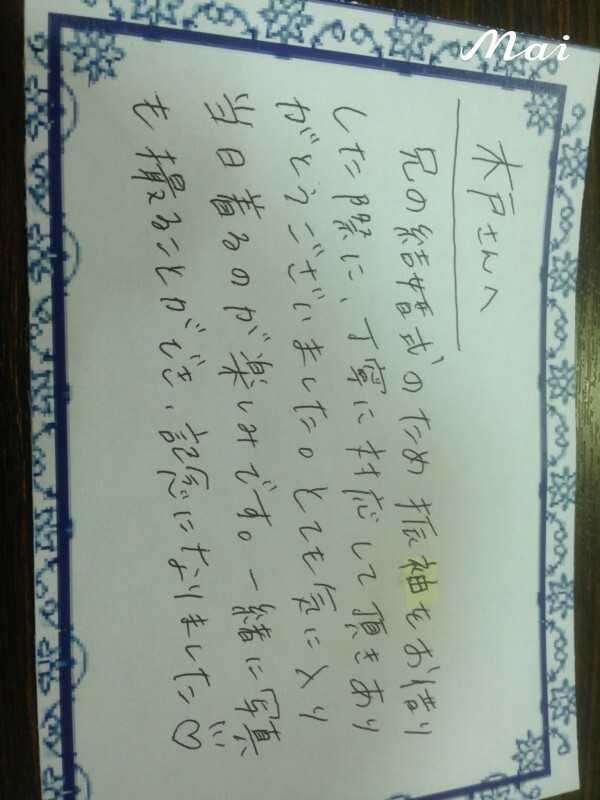 Mai
木戸さんへ
兄の結婚式のため振袖をお借り
した際に、丁寧に対応して頂きあり
がとうございました。とても気に入り
当日着るのが楽しみです。一緒に写真
も撮ることができ、記念になりました♡